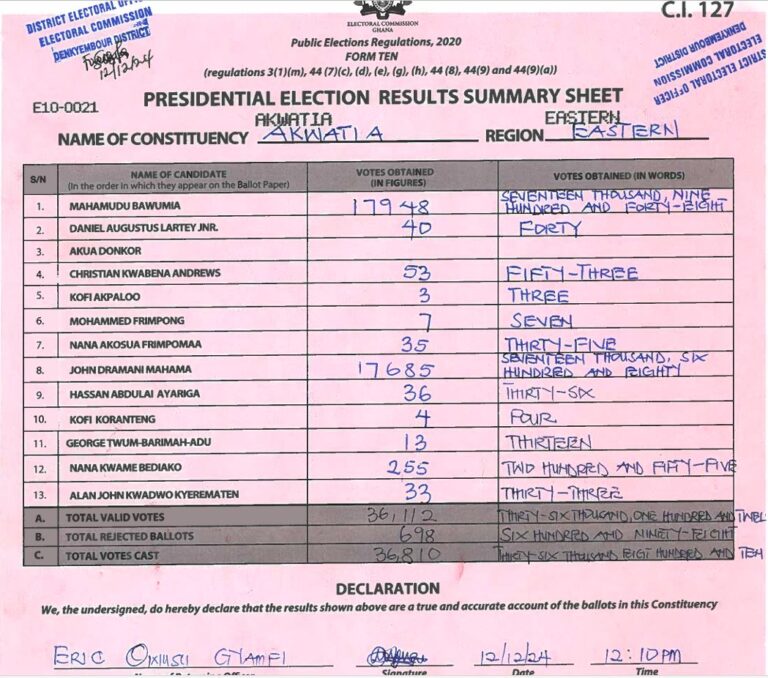 DISTRICT ELECTORAL OFF
ELECTORAL COMMISSION
DENKYEMBOUR DISTRICT
12/12/24
ELECTORAL COMMISSION
GHANA
C.I. 127
Public Elections Regulations, 2020
FORM TEN
(regulations 3(1)(m), 44 (7)(c), (d), (e), (g), (h), 44 (8), 44(9) and 44(9)(a))
STRICT ELECTORAL OFFICER
ELECTORAL COMMISSION
DENKYEMBOUR DISTRICT
E10-0021
PRESIDENTIAL ELECTION RESULTS SUMMARY SHEET
AKWATIA EASTERN
NAME OF CONSTITUENCY AKWATIA REGION EASTERN
S/N NAME OF CANDIDATE (In the order in which they appear on the Ballot Paper) VOTES OBTAINED (IN FIGURES) VOTES OBTAINED (IN WORDS)
1. MAHAMUDU BAWUMIA 17948 SEVENTEEN THOUSAND, NINE HUNDRED AND FORTY-EIGHT
2. DANIEL AUGUSTUS LARTEY JNR. 40 FORTY
3. AKUA DONKOR
4. CHRISTIAN KWABENA ANDREWS 53 FIFTY-THREE
5. KOFI AKPALOO 3 THREE
6. MOHAMMED FRIMPONG 7 SEVEN
7. NANA AKOSUA FRIMPOMAA 35 THIRTY-FIVE
8. JOHN DRAMANI MAHAMA 17685 SEVENTEEN THOUSAND, SIX HUNDRED AND EIGHTY
9. HASSAN ABDULAI AYARIGA 36 THIRTY-SIX
10. KOFI KORANTENG 4 FOUR
11. GEORGE TWUM-BARIMAH-ADU 13 THIRTEEN
12. NANA KWAME BEDIAKO 255 TWO HUNDRED AND FIFTY-FIVE
13. ALAN JOHN KWADWO KYEREMATEN 33 THIRTY-THREE
A. TOTAL VALID VOTES 36,112 THIRTY-SIX THOUSAND, ONE HUNDRED AND TWEL
B. TOTAL REJECTED BALLOTS 698 SIX HUNDRED AND NINETY-EIGHT
C. TOTAL VOTES CAST 36,810 THIRTY-SIX THOUSAND EIGT HUNDRED AND TEN
DECLARATION
We, the undersigned, do hereby declare that the results shown above are a true and accurate account of the ballots in this Constituency
ERIC OWUSU GYAMFI 12/12/24 12:10PM
Signature Date Time